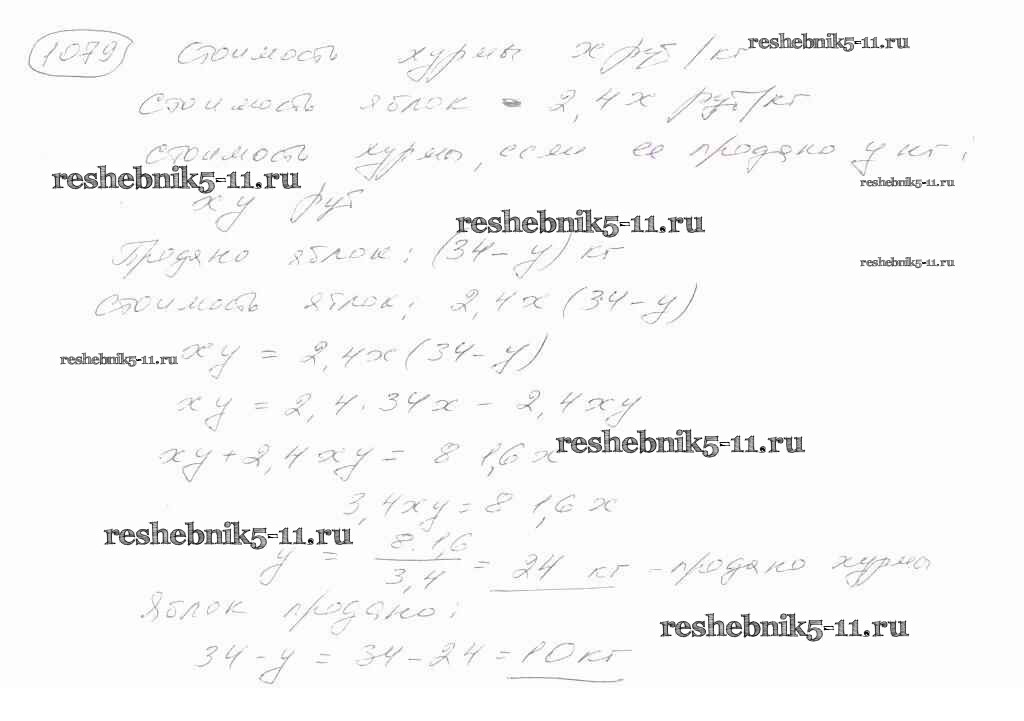 1079 Стоимость хурмы x руб/кг reshebnik5-11.ru
Стоимость яблок - 2,4x руб/кг
стоимость хурмы, если ее продано y кг:
reshebnik5-11.ru reshebnik5-11.ru
xy руб
reshebnik5-11.ru
Продано яблок: (34-y) кг
reshebnik5-11.ru
Стоимость яблок: 2,4x(34-y)
reshebnik5-11.ru xy = 2,4x(34-y)
xy = 2,4·34x - 2,4xy
xy+2,4xy = 81,6x reshebnik5-11.ru
3,4xy = 81,6x
reshebnik5-11.ru
y = 81,6/3,4 = 24 кг - продано хурмы
Яблок продано:
reshebnik5-11.ru
34-y = 34-24 = 10 кг